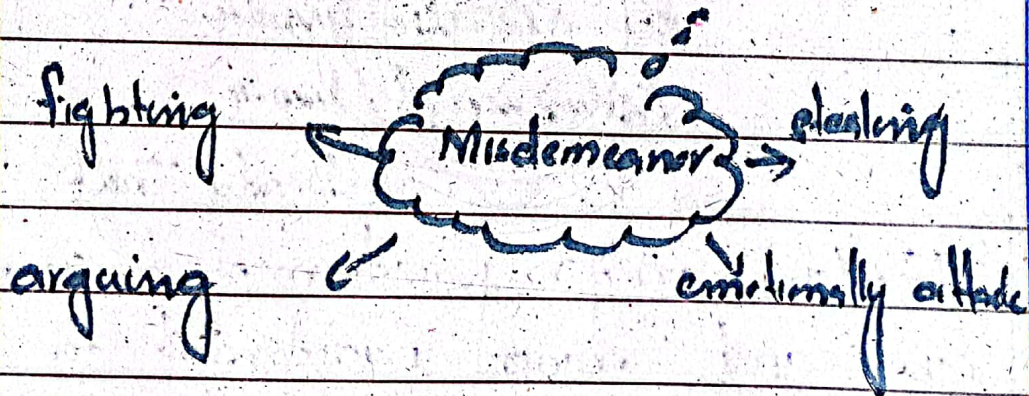 fighting
Misdemeanor
stealing
arguing
emotionally attack